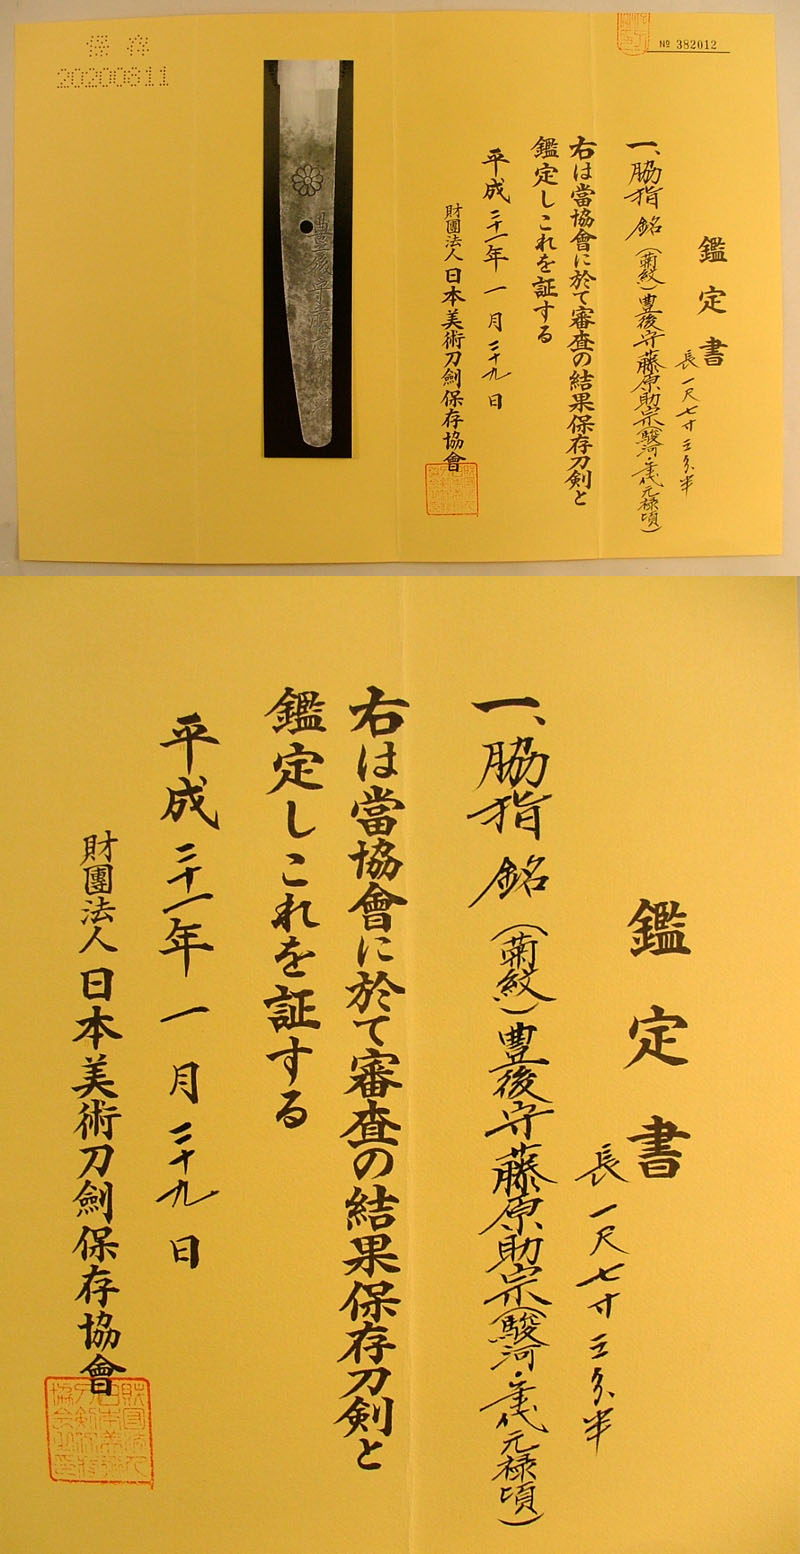 保存
20200811
№ 382012
鑑定書
長 一尺七寸三分半
一、脇指 銘 (菊紋)豊後守藤原助宗(駿河・年代元禄頃)
右は當協會に於て審査の結果保存刀剣と
鑑定しこれを証する
平成二十一年 一月二十九日
財團法人 日本美術刀劍保存協會
豊後守藤原
鑑定書
長 一尺七寸三分半
一、脇指 銘 (菊紋)豊後守藤原助宗(駿河・年代元禄頃)
右は當協會に於て審査の結果保存刀剣と
鑑定しこれを証する
平成二十一年 一月二十九日
財團法人 日本美術刀劍保存協會